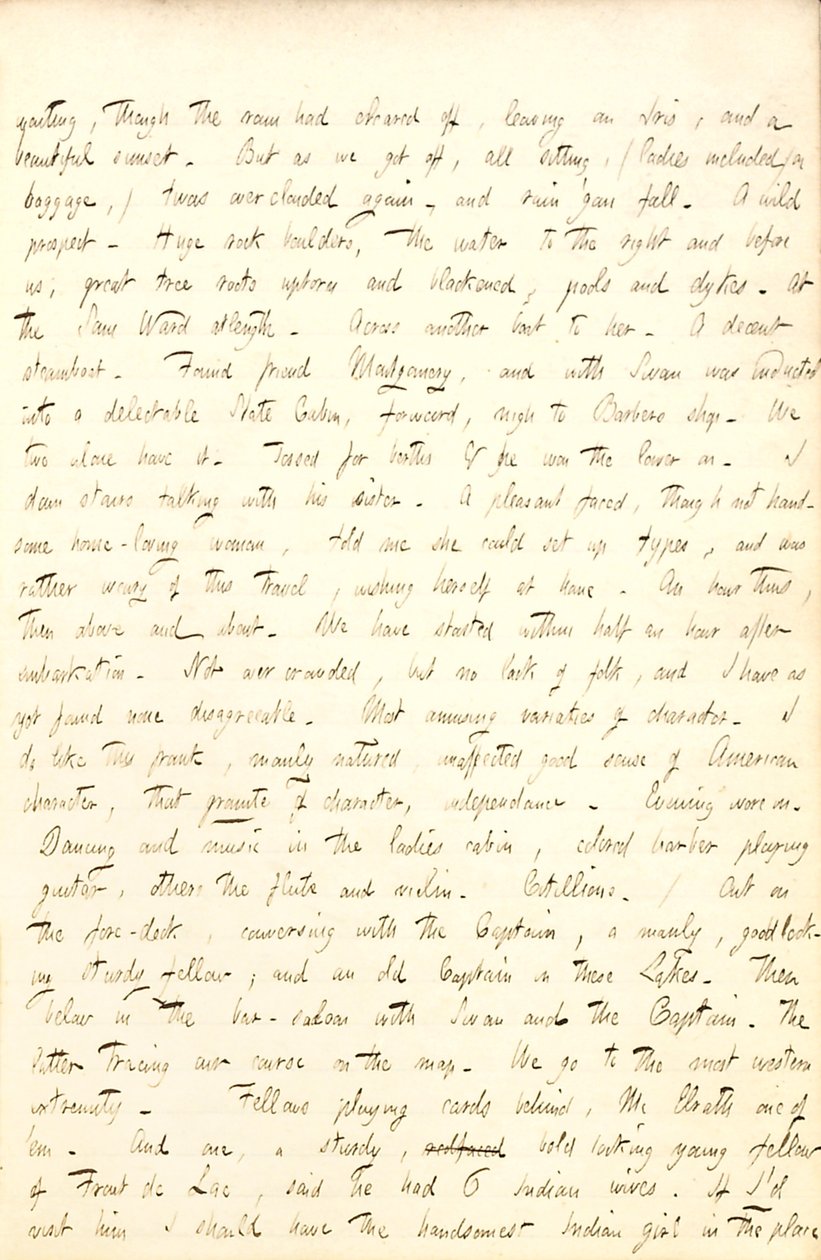 waiting, though the rain had cleared off, leaving an Iris, and a
beautiful sunset. But as we got off, all sitting, (ladies included on
baggage,) twas over clouded again, and rain 'gan fall. A wild
prospect. Huge rock boulders, the water to the right and before
us, great tree roots uptorn and blackened, pools and dykes. At
the Sam Ward at length. Across another boat to her. A decent
steamboat. Found friend Montgomery, and with Swan was inducted
into a delectable State Cabin, forward, nigh to Barbers shop. We
two alone have it. Tossed for berths & he won the lower on. I
down stairs talking with his sister. A pleasant faced, though not hand-
some home-loving woman, told me she could set up types, and was
rather weary of this travel, wishing herself at home. An hour thus,
then above and about. We have started within half an hour after
embarkation. Not over crowded, but no lack of folk, and I have as
yet found none disagreeable. Most amusing varieties of character. I
do like this frank, manly natured, unaffected good sense of American
character, that granite of character, independance. Evening wore on.
Dancing and music in the ladies cabin, colored barber playing
guitar, others the flute and violin. Cotillions. / Out on
the fore-deck, conversing with the Captain, a manly, good look-
ing sturdy fellow; and an old Captain on these Lakes. Then
below in the bar-saloon with Swan and the Captain. The
latter tracing our course on the map. We go to the most western
extremity. Fellows playing cards behind, Mc Elrath one of
'em. And one, a sturdy, redfaced bold looking young fellow
of Front de Lac, said he had 6 Indian wives. If I'd
visit him I should have the handsomest Indian girl in the place